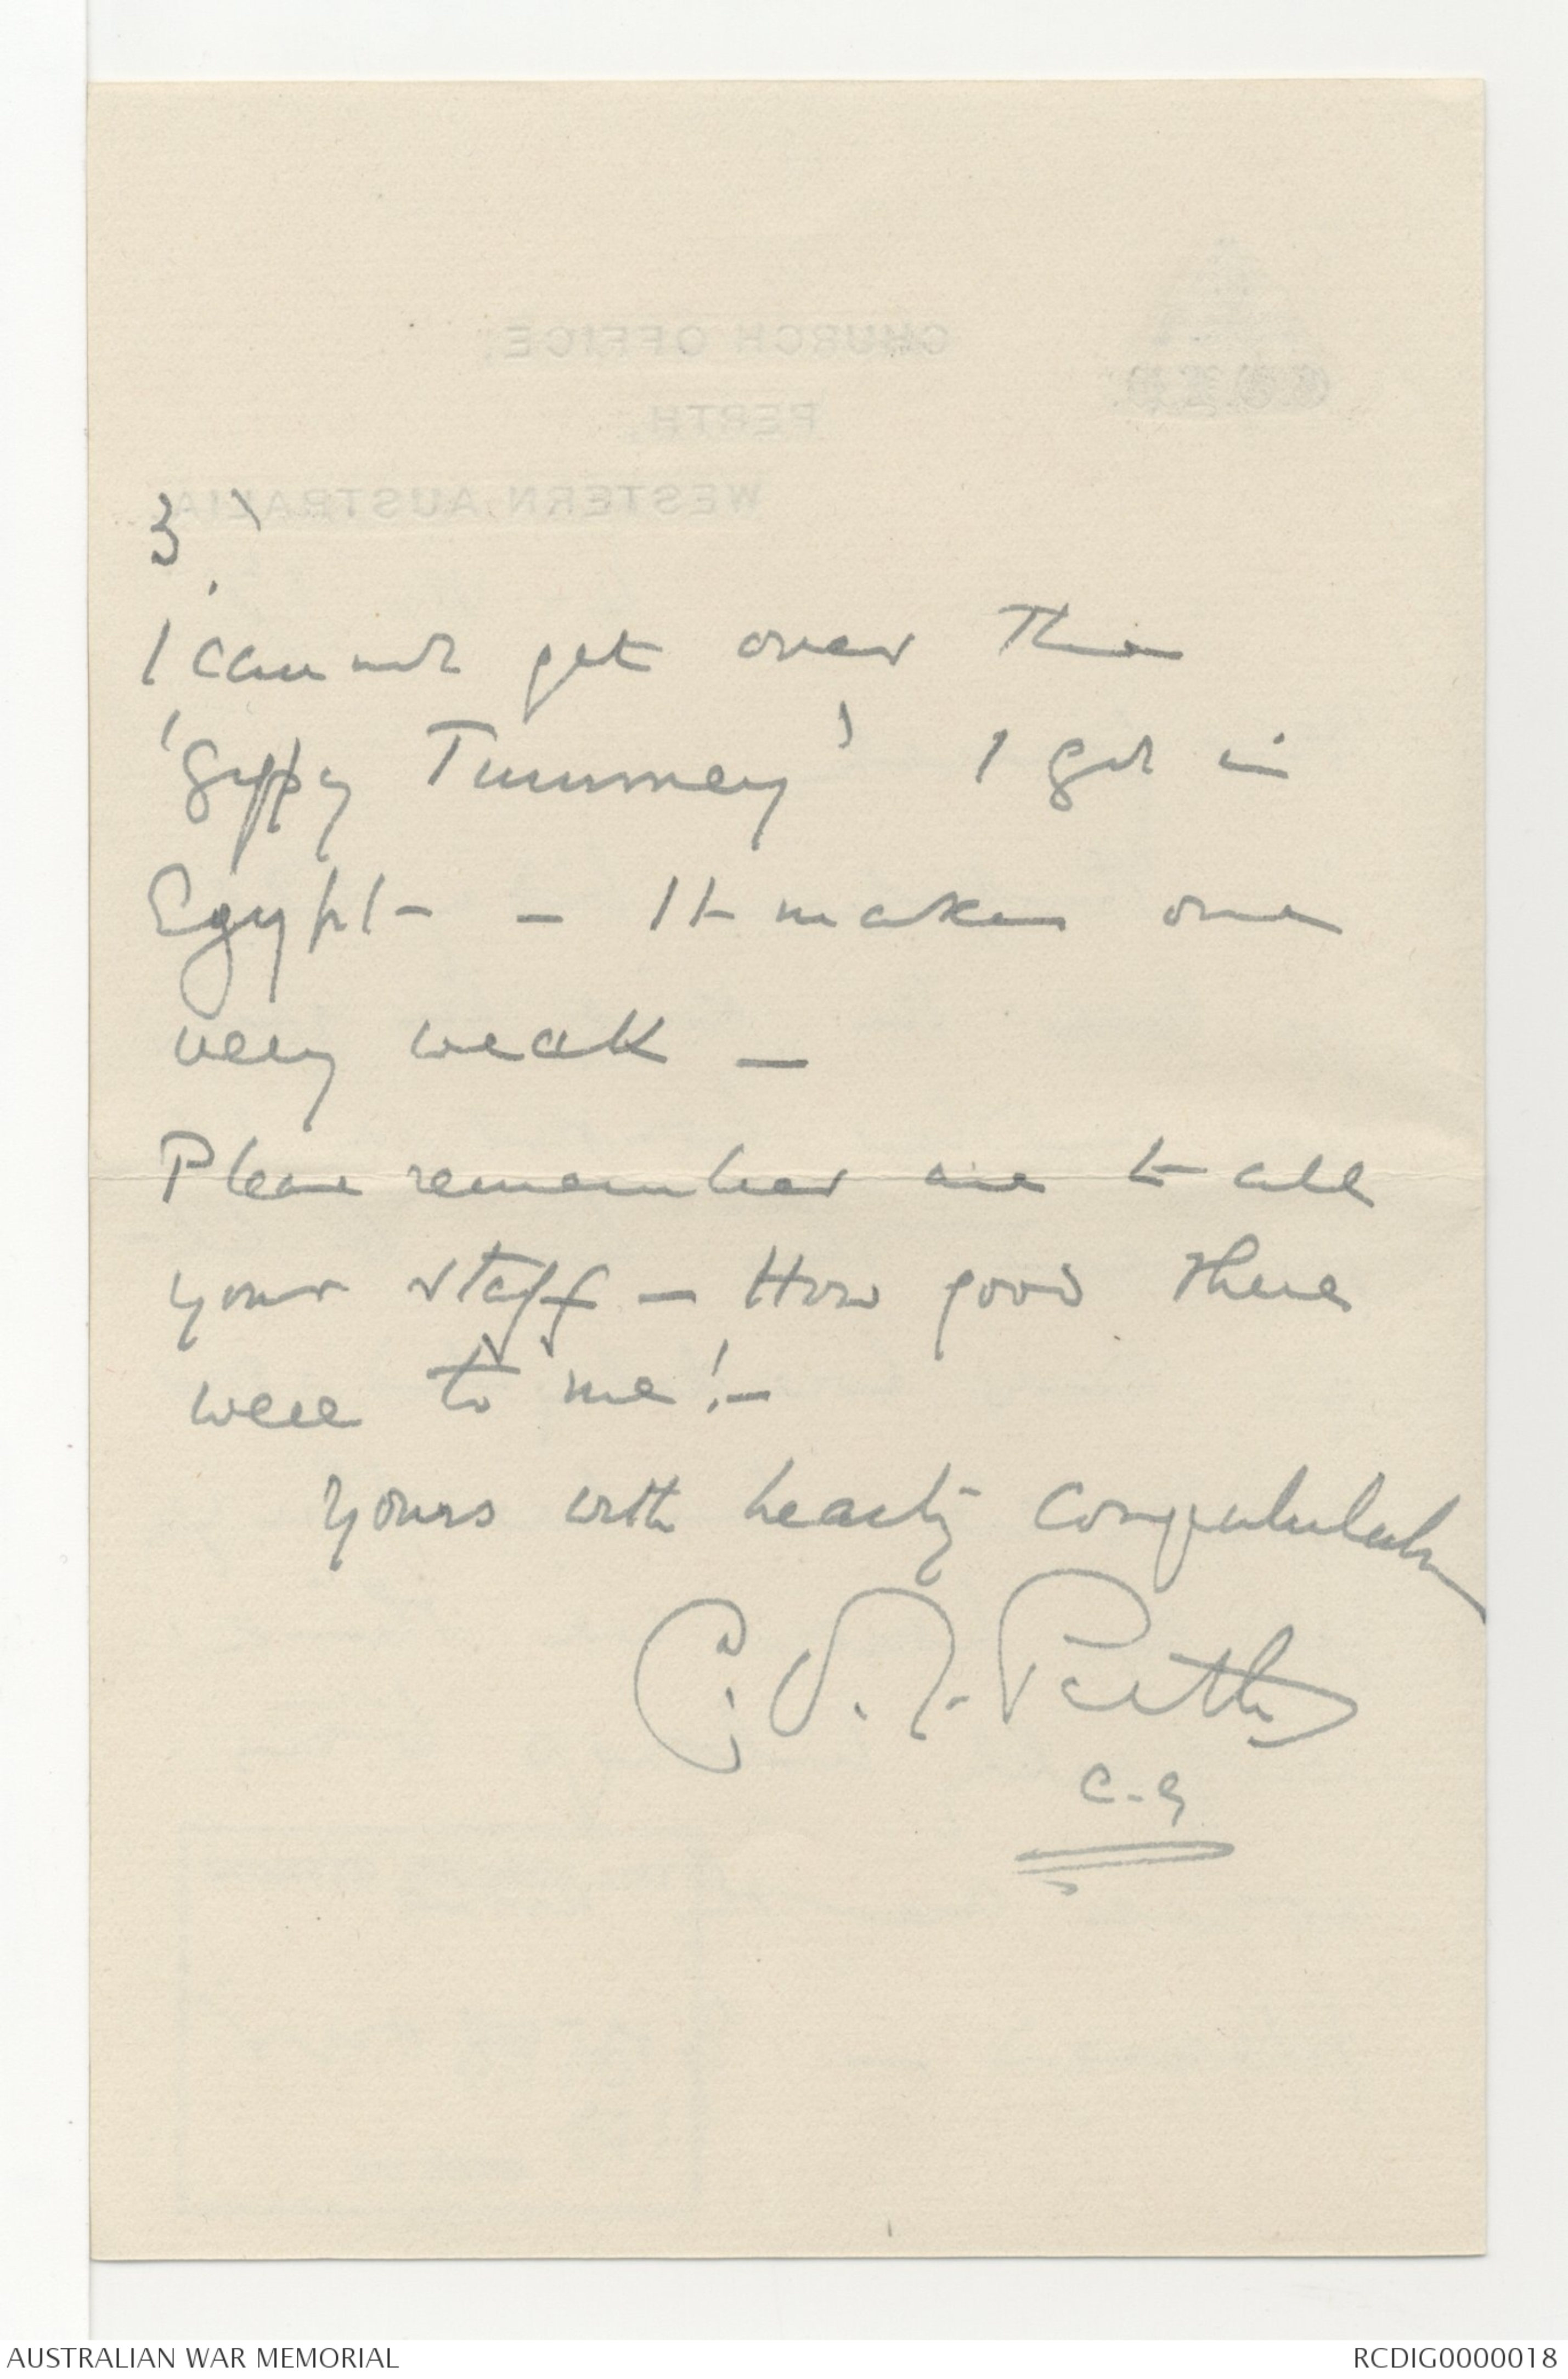 3
I cannot get over the
'gippy Tummey' I got in
Egypt - It makes one
very weak -
Please remember me to all
your staff - How good these
were to me! -
Yours with hearty congratulation
C.O.L. Perth
C-G
CHURCH OFFICE,
PERTH,
WESTERN AUSTRALIA
AUSTRALIAN WAR MEMORIAL
RCDIG0000018